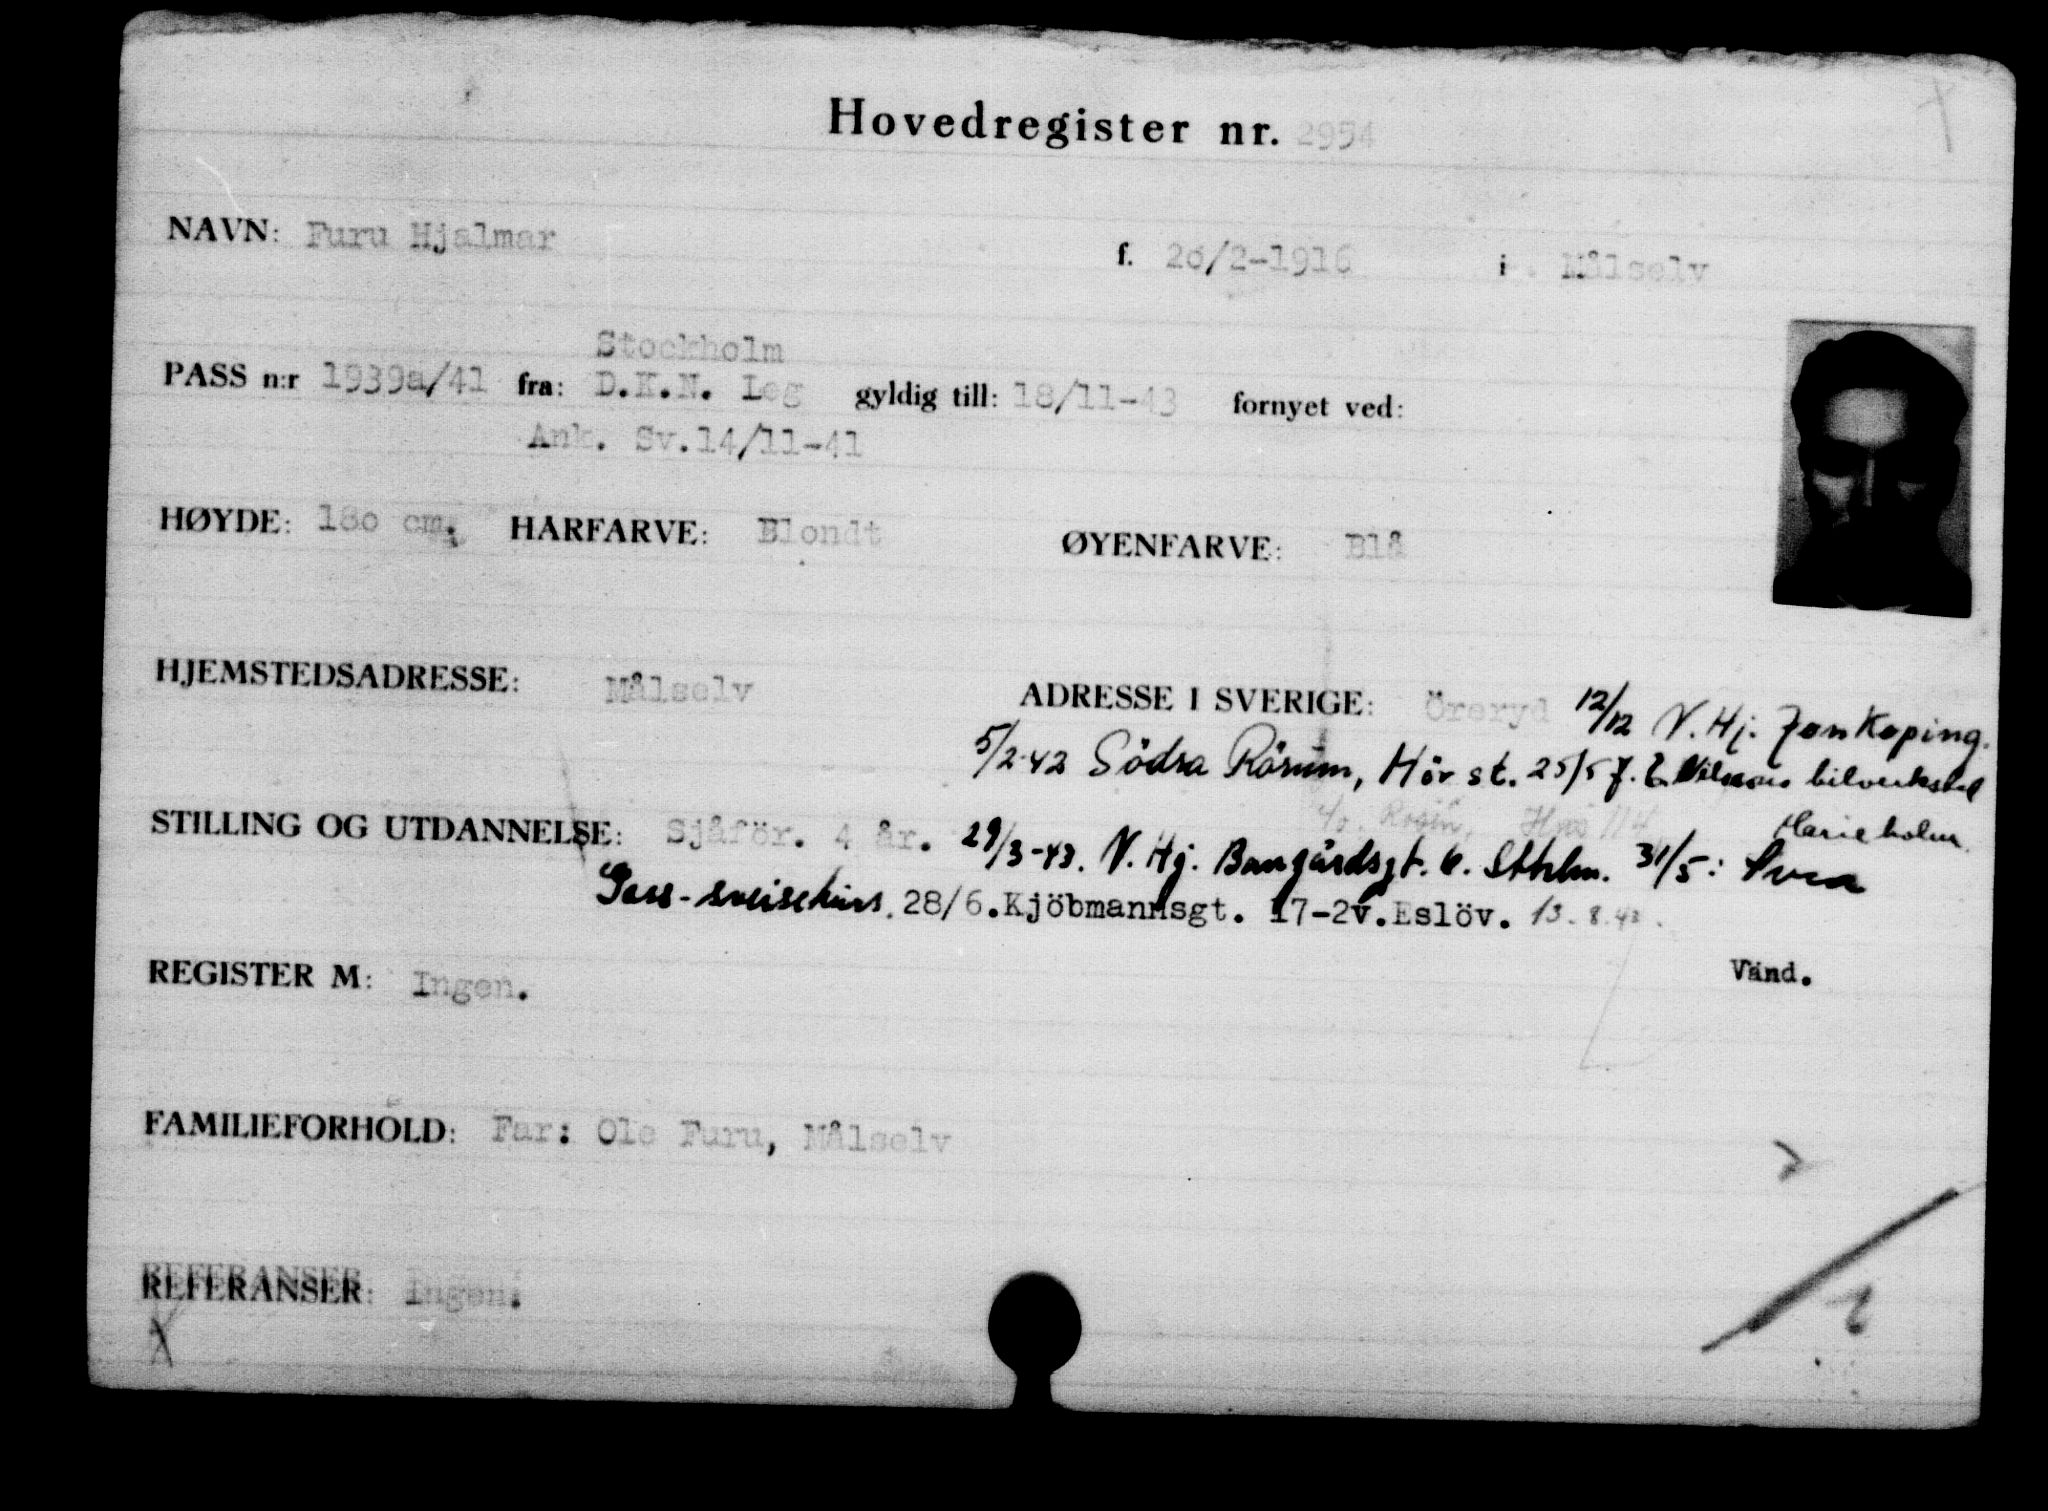 Hovedregister nr. 2954
NAVN: Furu Hjalmar f. 26/2-1916 i Målselv
Stockholm
PASS n:r 1939a/41 fra: D.K.N. Leg gyldig till: 18/11-43 fornyet ved:
Ank. Sv.14/11-41
HØYDE: 180 cm. HÅRFARVE: Blondt ØYENFARVE: Blå
HJEMSTEDSADRESSE: Målselv ADRESSE I SVERIGE: Öreryd 12/12 N. Hj. Jonkoping.
5/2-42 Södra Rörum, Hör st. 25/5 J. E. Nilssons bilverksted
Marieholm.
STILLING OG UTDANNELSE: Sjåför. 4 år. 29/3-43. N. Hj. Bangårdsgt. 6. Sthlm. 31/5: Svea
Gass-sveisekurs. 28/6.Kjöbmannsgt. 17-2v.Eslöv. 13.8.43.
REGISTER M: Ingen. Vänd.
FAMILIEFORHOLD: Far: Ole Furu, Målselv
REFERANSER: Ingen.